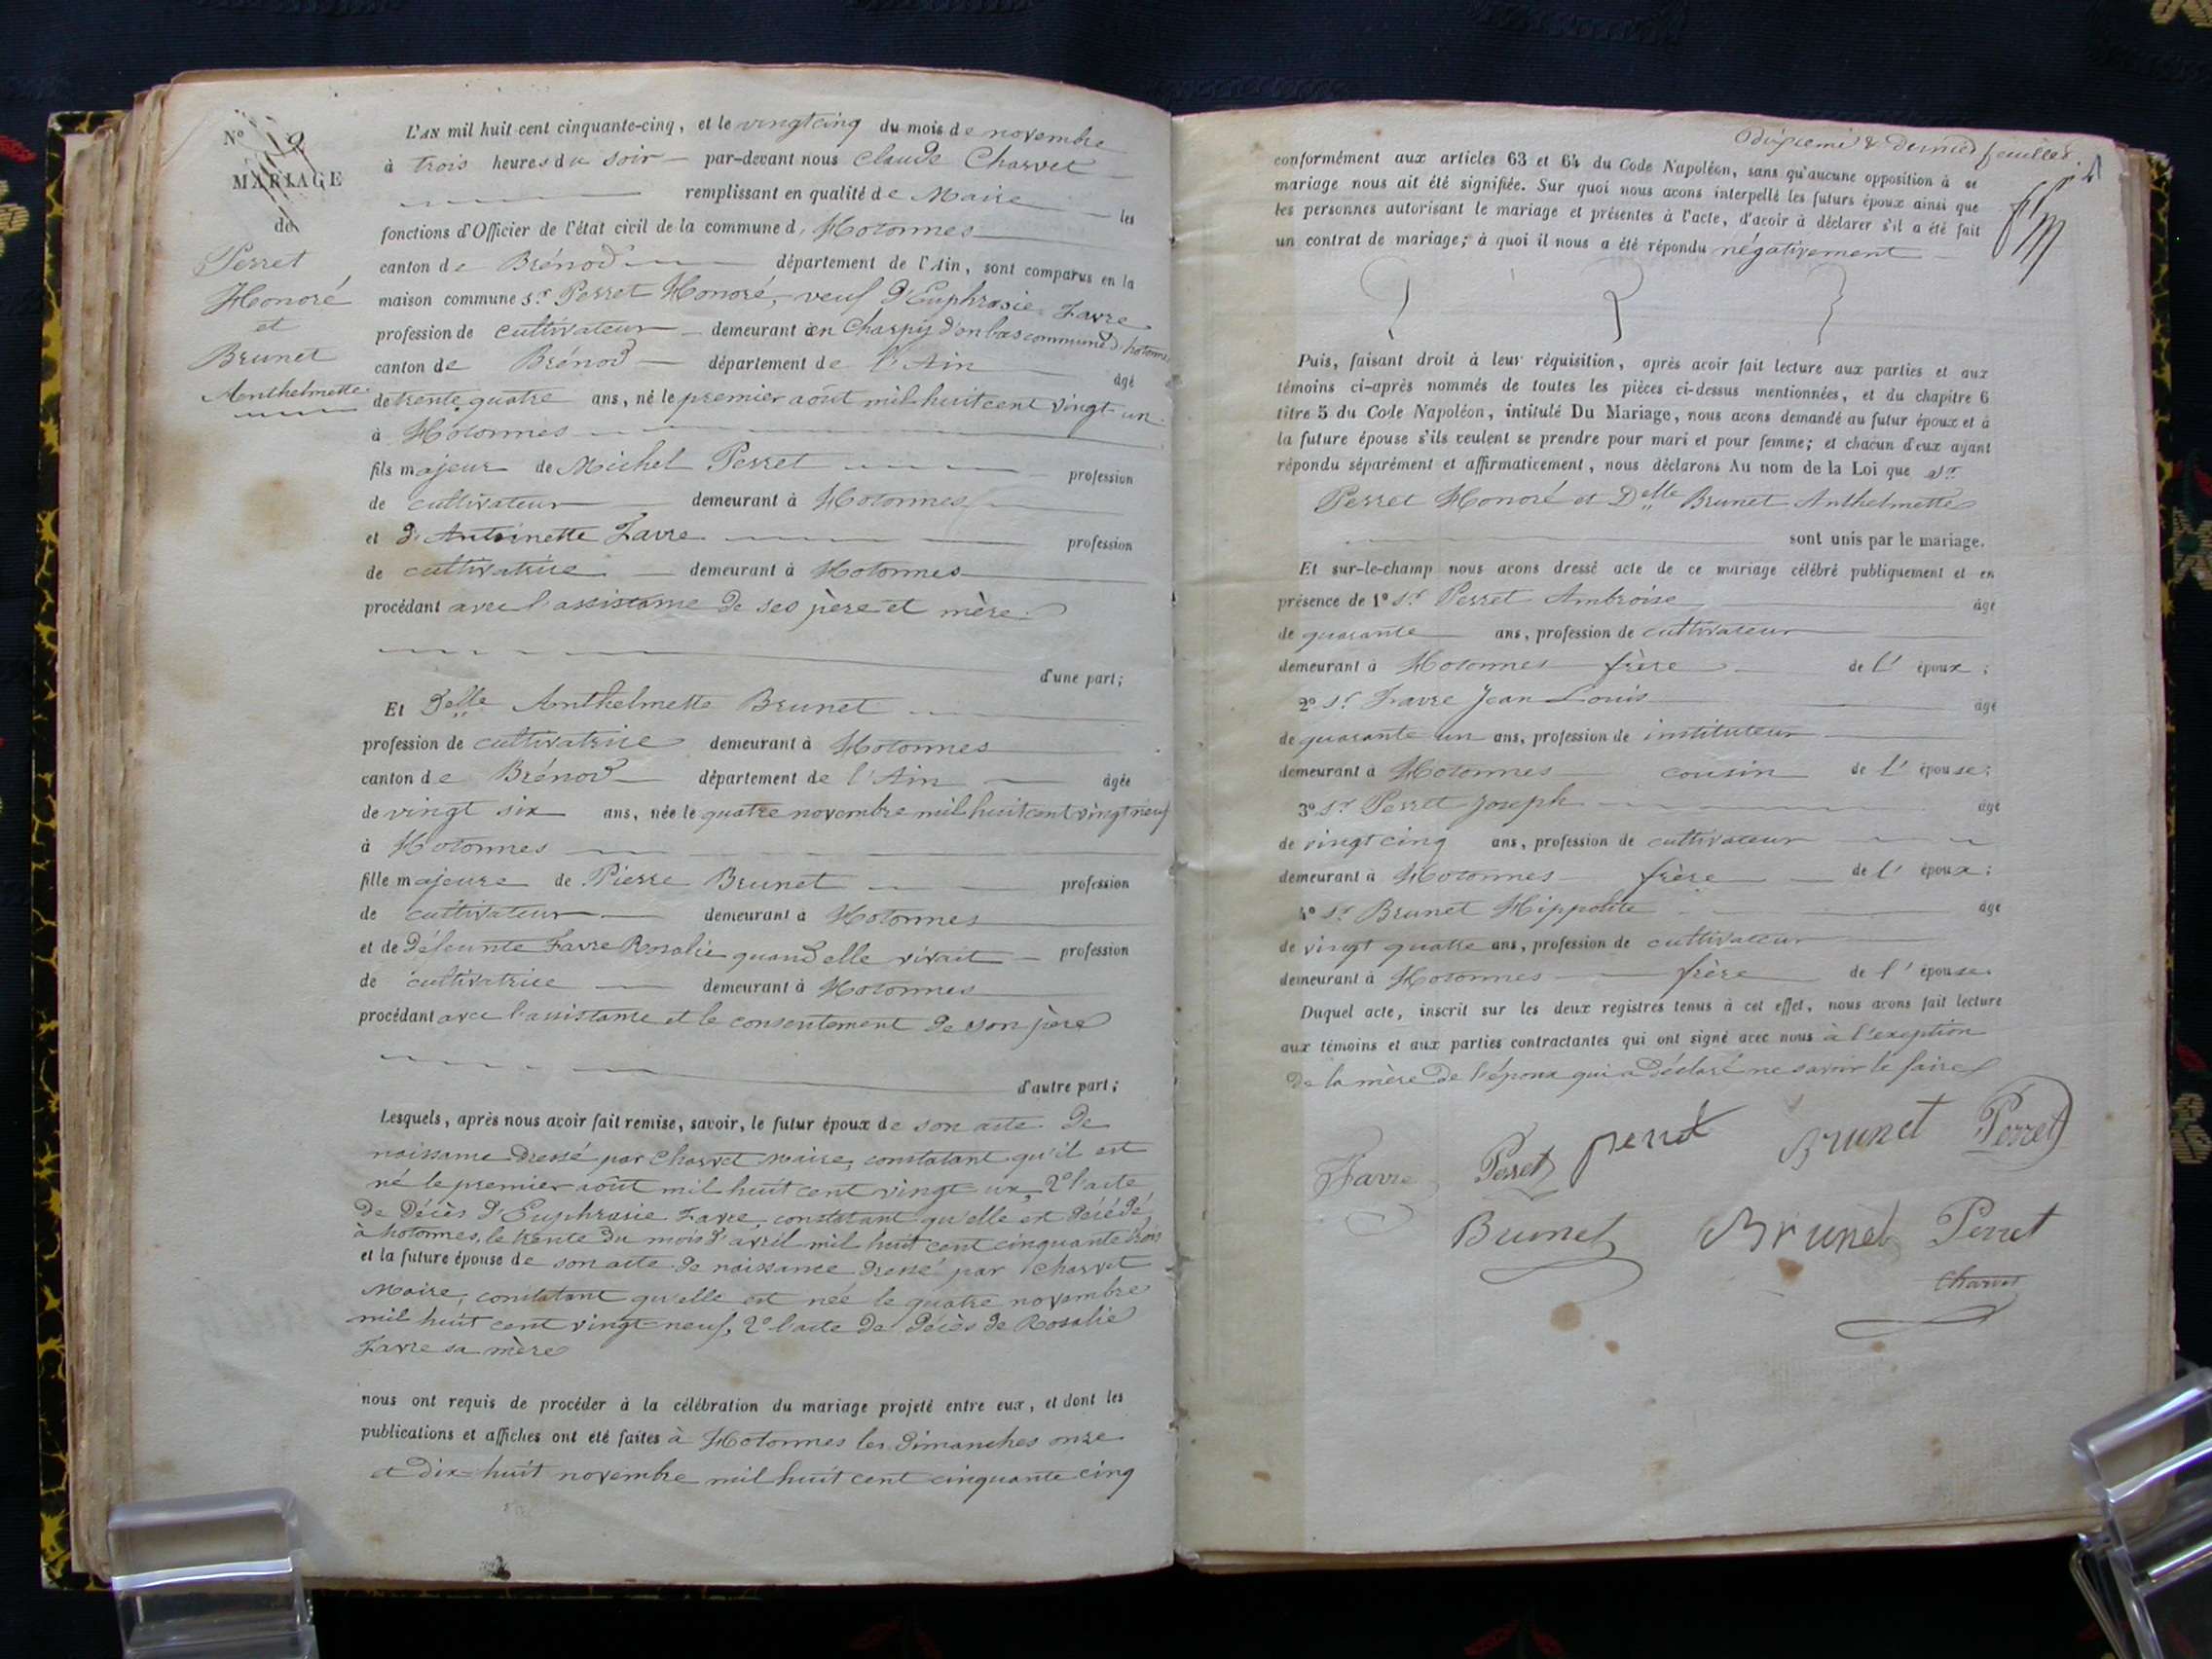 Nº 19
MARIAGE
de
Perret
Honoré
et
Brunet
Anthelmette
L'AN mil huit cent cinquante-cinq, et le vingt cinq du mois de novembre
à trois heures du soir par-devant nous Claude Charvet
remplissant en qualité de Maire les
fonctions d'Officier de l'état civil de la commune d' Hotonnes
canton de Brénod département de l'Ain, sont comparus en la
maison commune Sr Perret Honoré, veuf d'Euphrasie Favre
profession de cultivateur demeurant à en Charpy d'en bas commune d'hotonnes
canton de Brénod département de l'Ain âgé
de trente quatre ans, né le premier août mil huit cent vingt un
à Hotonnes
fils majeur de Michel Perret profession
de cultivateur demeurant à Hotonnes
et d'Antoinette Favre profession
de cultivatrice demeurant à Hotonnes
procédant avec l'assistance de ses père et mère
d'une part;
Et Delle Anthelmette Brunet
profession de cultivatrice demeurant à Hotonnes
canton de Brénod département de l'Ain âgée
de vingt six ans, née le quatre novembre mil huit cent vingt neuf
à Hotonnes
fille majeure de Pierre Brunet profession
de cultivateur demeurant à Hotonnes
et de défeunte Favre Rosalie quand elle vivait profession
de cultivatrice demeurant à Hotonnes
procédant avec l'assistance et le consentement de son père
d'autre part;
Lesquels, après nous avoir fait remise, savoir, le futur époux de son acte de
naissance dressé par Charvet maire, constatant qu'il est
né le premier août mil huit cent vingt un, 2º l'acte
de décès d'Euphrasie Favre, constatant qu'elle est décédé
à hotonnes, le trente du mois d'avril mil huit cent cinquante trois
et la future épouse de son acte de naissance dressé par Charvet
Maire, constatant qu'elle est née le quatre novembre
mil huit cent vingt neuf, 2º l'acte de décès de Rosalie
Favre sa mère
nous ont requis de procéder à la célébration du mariage projeté entre eux, et dont les
publications et affiches ont été faites à Hotonnes les dimanches onze
et dix-huit novembre mil huit cent cinquante cinq
dixieme & dernier feuillet.
conformément aux articles 63 et 64 du Code Napoléon, sans qu'aucune opposition à ce
mariage nous ait été signifiée. Sur quoi nous avons interpellé les futurs époux ainsi que
les personnes autorisant le mariage et présentes à l'acte, d'avoir à déclarer s'il a été fait
un contrat de mariage; à quoi il nous a été répondu négativement
Puis, faisant droit à leur réquisition, après avoir fait lecture aux parties et aux
témoins ci-après nommés de toutes les pièces ci-dessus mentionnées, et du chapitre 6
titre 5 du Code Napoléon, intitulé Du Mariage, nous avons demandé au futur époux et à
la future épouse s'ils veulent se prendre pour mari et pour femme; et chacun d'eux ayant
répondu séparément et affirmativement, nous déclarons Au nom de la Loi que Sr
Perret Honoré et Delle Brunet Anthelmette
sont unis par le mariage.
Et sur-le-champ nous avons dressé acte de ce mariage célébré publiquement et en
présence de 1º Sr Perret Ambroise âgé
de quarante ans, profession de cultivateur
demeurant à Hotonnes frère de l' époux;
2º Sr Favre Jean Louis âgé
de quarante un ans, profession de instituteur
demeurant à Hotonnes cousin de l' épouse;
3º Sr Perret Joseph âgé
de vingt cinq ans, profession de cultivateur
demeurant à Hotonnes frère de l' époux;
4º Sr Brunet Hippolite âgé
de vingt quatre ans, profession de cultivateur
demeurant à Hotonnes frère de l' épouse.
Duquel acte, inscrit sur les deux registres tenus à cet effet, nous avons fait lecture
aux témoins et aux parties contractantes qui ont signé avec nous à l'exeption
de la mère de l'époux qui a déclaré ne savoir le faire
Favre Perret perret Brunet Perret
Brunet Brunet Perret
Charvet